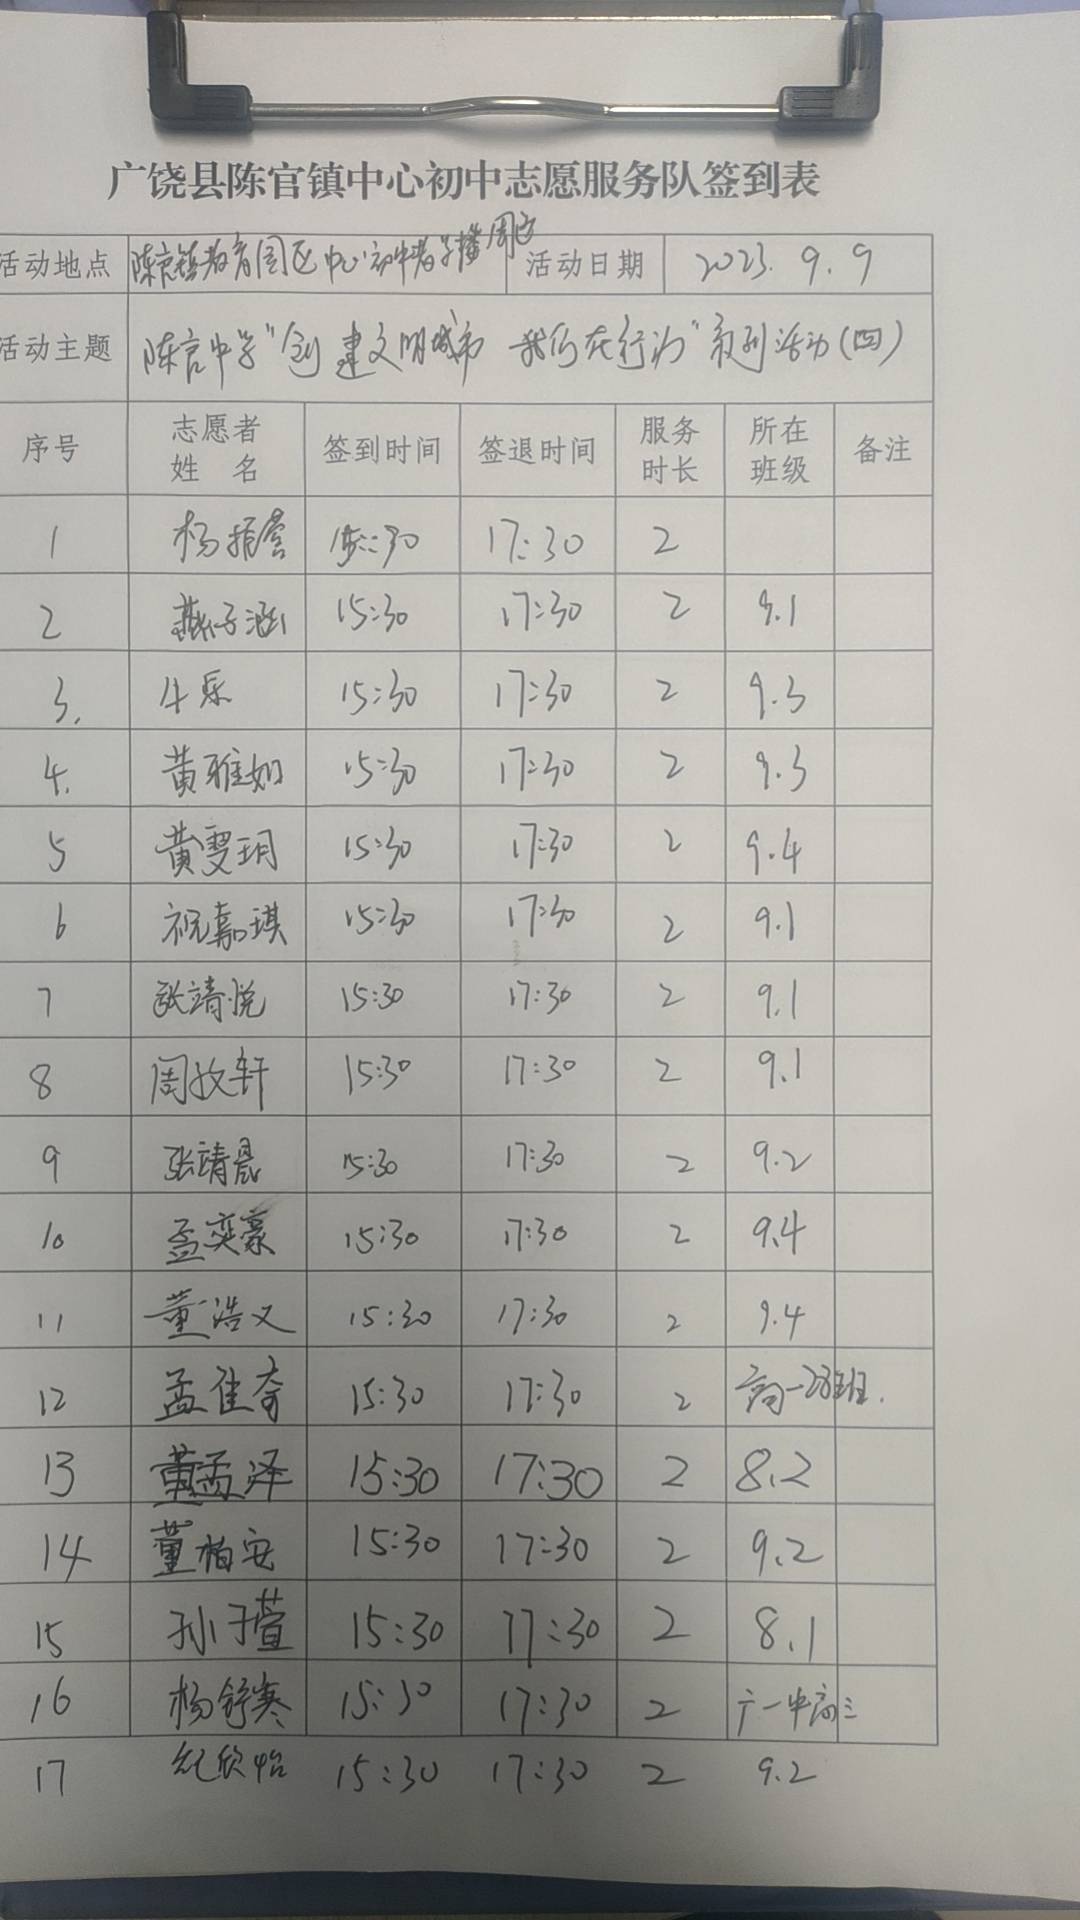 广饶县陈官镇中心初中志愿服务队签到表
活动地点 陈官镇教育园区中心初中 周边 活动日期 2023.9.9
活动主题 陈官中学“创建文明城市 我们在行动”系列活动(四)
序号 志愿者姓名 签到时间 签退时间 服务时长 所在班级 备注
1 杨 15:30 17:30 2
2 燕子涵 15:30 17:30 2 9.1
3. 牛乐 15:30 17:30 2 9.3
4. 黄雅如 15:30 17:30 2 9.3
5 黄雯玥 15:30 17:30 2 9.4
6 祝嘉琪 15:30 17:30 2 9.1
7 张靖悦 15:30 17:30 2 9.1
8 周孜轩 15:30 17:30 2 9.1
9 张靖晨 15:30 17:30 2 9.2
10 孟奕豪 15:30 17:30 2 9.4
11 董浩义 15:30 17:30 2 9.4
12 孟佳奇 15:30 17:30 2 高一23班.
13 董孟泽 15:30 17:30 2 8.2
14 董柏安 15:30 17:30 2 9.2
15 孙子萱 15:30 17:30 2 8.1
16 杨舒寒 15:30 17:30 2 广一中高三
17 纪欣怡 15:30 17:30 2 9.2